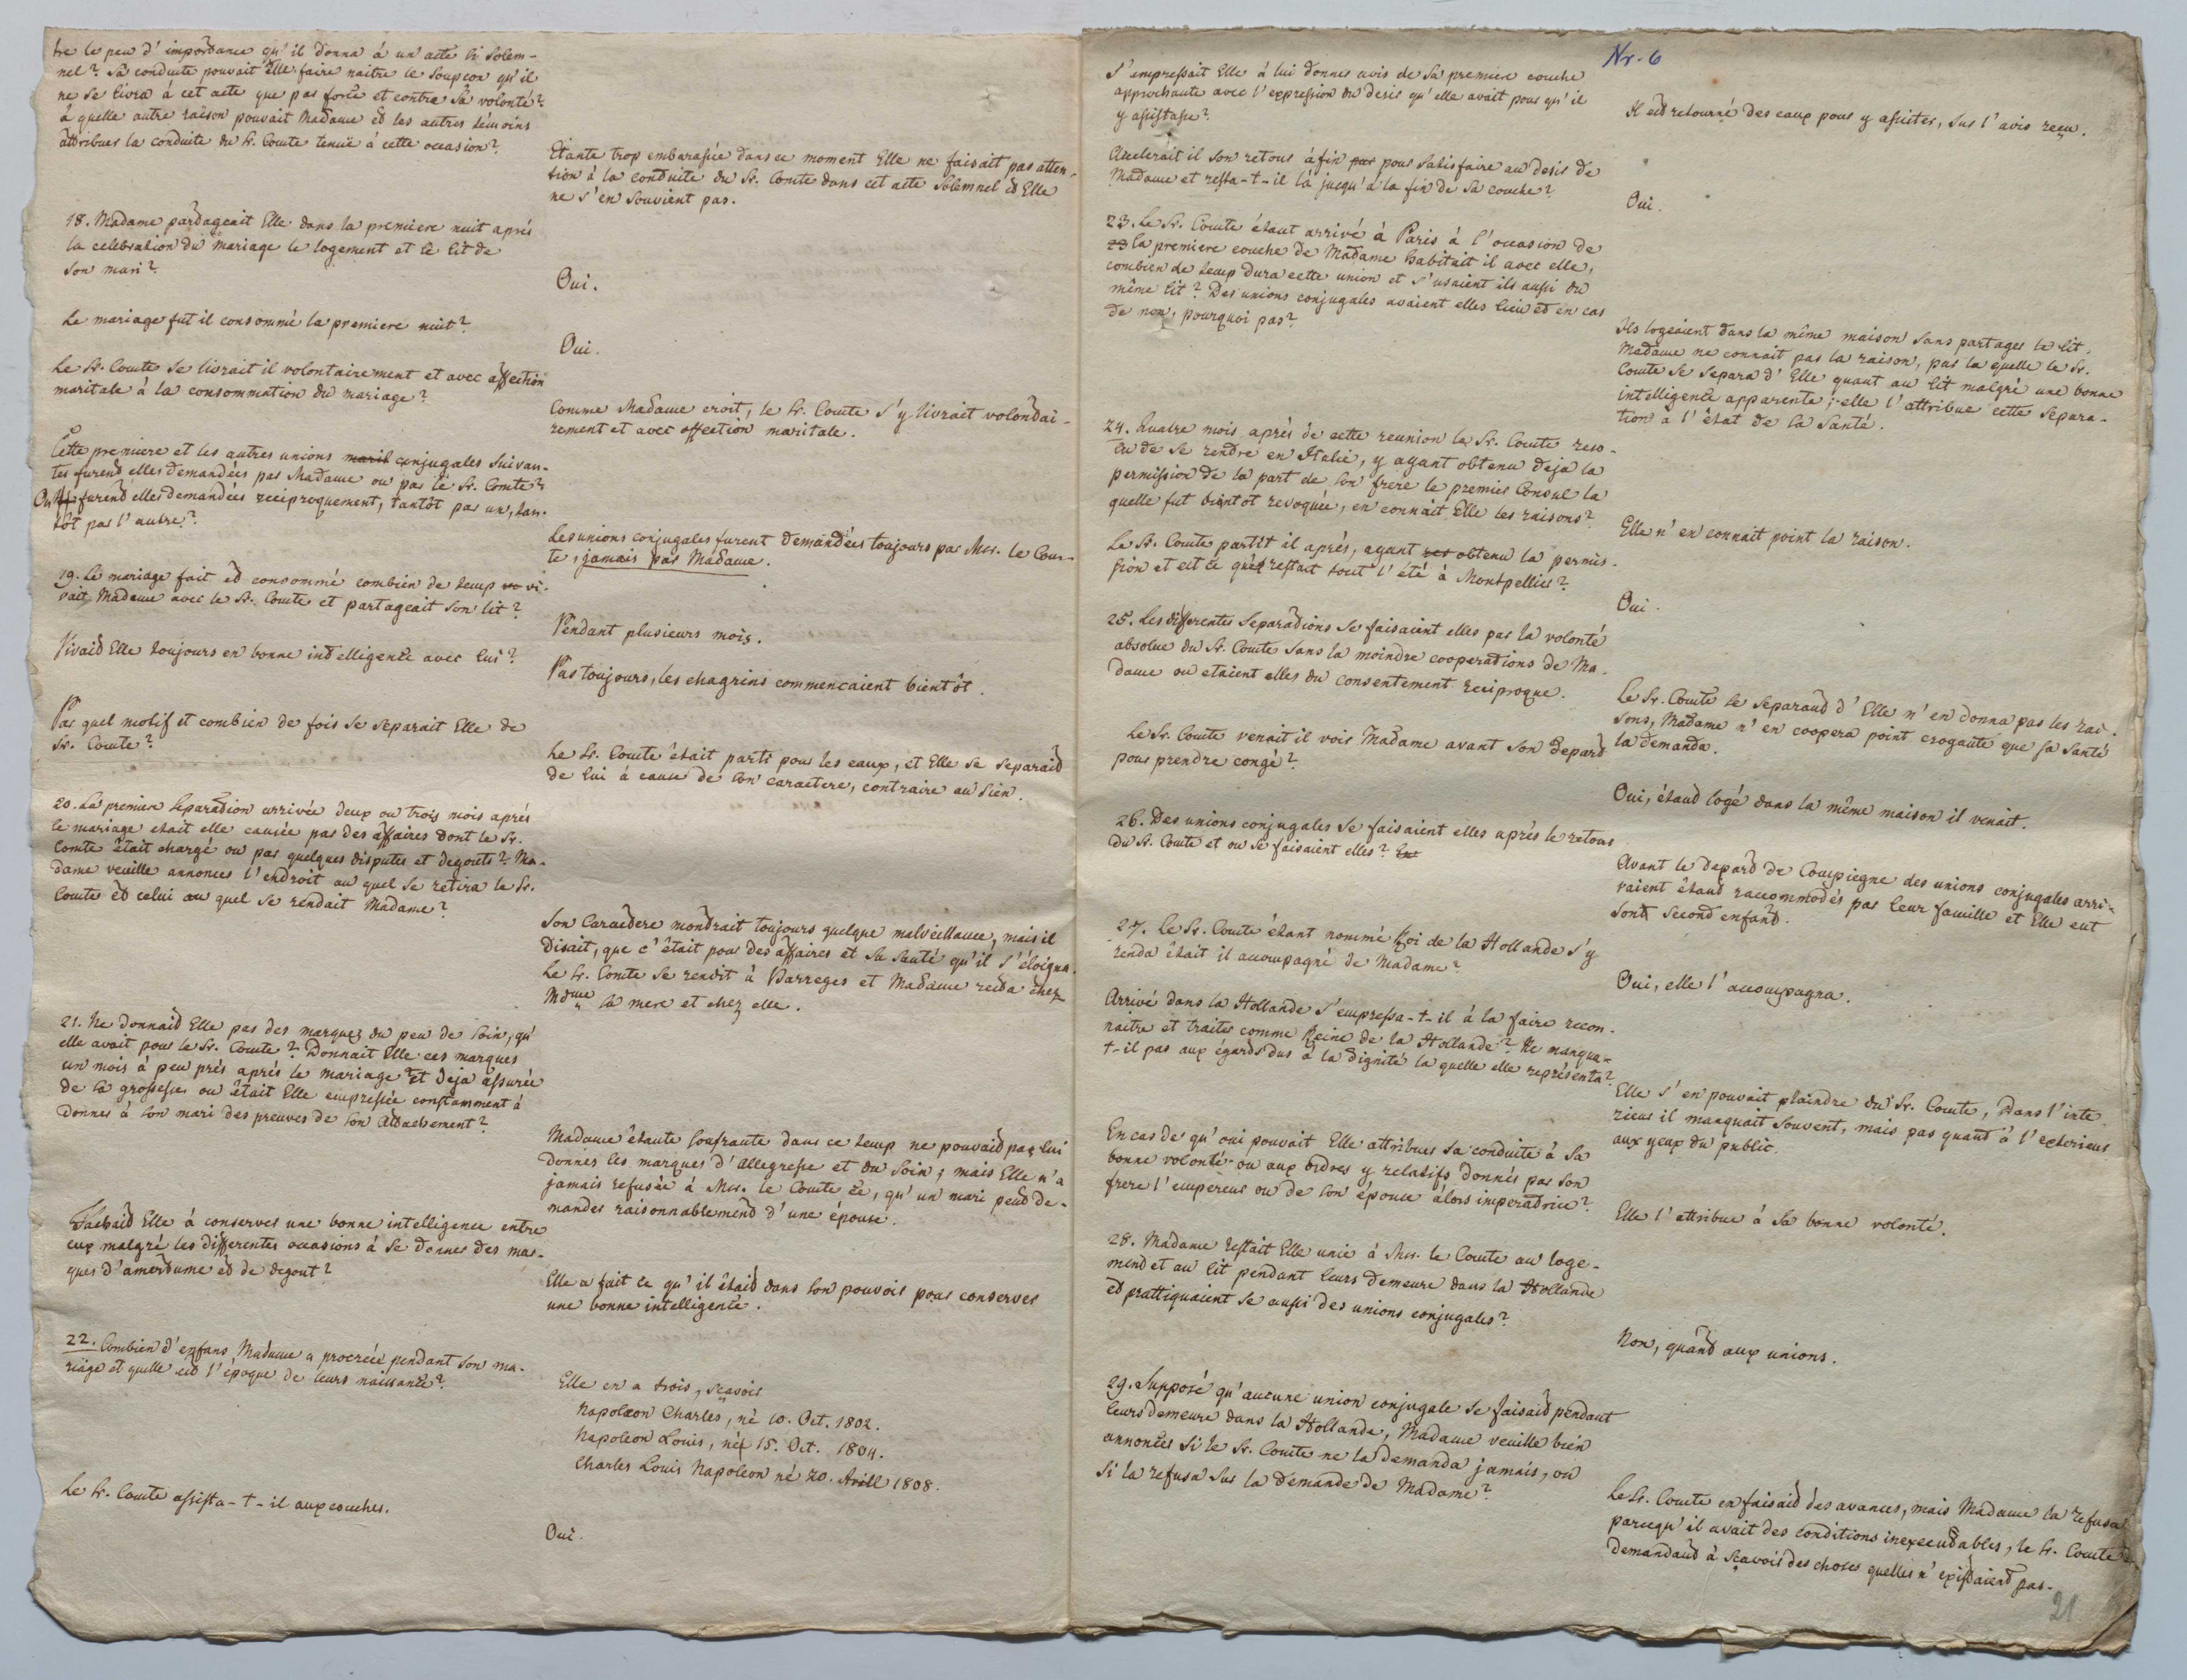 tre le peu d'importance qu'il donna à un acte si solem-
nel? Sa conduite pouvait Elle faire naitre le soupçon qu'il
ne se livra à cet acte que par force et contre sa volonté?
à quelle autre raison pouvait Madame et les autres témoins
attribuer la conduite du Sr. Comte tenuë à cette occasion?
Etante trop embarassée dans ce moment Elle ne faisait pas atten-
tion à la conduite du Sr. Comte dans cet acte solemnel et Elle
ne s'en souvient pas.
18. Madame partageait Elle dans la premiere nuit aprés
la celebration du mariage le logement et le lit de
son mari?
Oui.
Le mariage fut il consommé la premiere nuit?
Oui.
Le Sr. Comte se livrait il volontairement et avec affection
maritale à la consommation du mariage?
Comme Madame croit, le Sr. Comte s'y livrait volontai-
rement et avec affection maritale.
Cette premiere et les autres unions marit conjugales suivan-
tes furent elles demandées par Madame ou par le Sr. Comte?
Ou furent elles demandées reciproquement, tantôt par un, tan-
tôt par l'autre?
Les unions conjugales furent demandées toujours par Mr. le Com-
te, jamais par Madame.
19. Le mariage fait et consommé combien de temp vi-
vait Madame avec le Sr. Comte et partageait son lit?
Pendant plusieurs mois.
Vivait Elle toujours en bonne intelligence avec lui?
Pas toujours, les chagrins commencaient bientôt.
Par quel motif et combien de fois se separait Elle de
Sr. Comte?
Le Sr. Comte était parti pour les eaux, et Elle se separait
de lui à cause de son caractere, contraire au sien.
20. La premiere separation arrivée deux ou trois mois aprés
le mariage etait elle causée par des affaires dont le Sr.
Comte était chargé ou par quelques disputes et degouts? Ma-
dame veuille annoncer l'endroit au quel se retira le Sr.
Comte et celui au quel se rendait Madame?
Son Caractere montrait toujours quelque malveillance, mais il
disait, que c'était pour des affaires et sa santé qu'il s'éloigna.
Le Sr. Comte se rendit à Barreges et Madame resta chez
Mdme sa mere et chez elle.
21. Ne donnait Elle pas des marques du peu de soin, qu'
elle avait pour le Sr. Comte? Donnait Elle ces marques
un mois à peu prés aprés le mariage et deja assurée
de sa grossesse, ou était Elle empressée constamment à
donner à son mari des preuves de son attachement?
Madame étante soufrante dans ce temp ne pouvait pas lui
donner les marques d'allegresse et du soin; mais Elle n'a
jamais refusée à Mr. le Comte ce, qu'un mari peut de-
mander raisonnablement d'une épouse.
Tachait Elle à conserver une bonne intelligence entre
eux malgré les differentes occasions à se donner des mar-
ques d'amertume et de degout?
Elle a fait ce qu'il était dans son pouvoir pour conserver
une bonne intelligence.
22. Combien d'enfans Madame a procréé pendant son ma-
riage et quelle est l'époque de leurs naissance?
Elle en a trois, sçavoir
Napoleon Charles, né 10. Oct. 1802.
Napoleon Louis, né 15. Oct. 1804.
Charles Louis Napoleon né 20. Avill 1808.
Le Sr. Comte assista-t-il aux couches.
Oui.
Nr. 6
S'empressait Elle à lui donner avis de sa premiere couche
approchante avec l'expression du desir qu'elle avait pour qu'il
y assistasse?
Il est retourné des eaux pour y assister, sur l'avis reçu.
Accelerait il son retour àfin par pour satisfaire au desir de
Madame et resta-t-il là jusqu'à la fin de sa couche?
Oui.
23. Le Sr. Comte étant arrivé à Paris à l'occasion de
23 la premiere couche de Madame habitait il avec elle,
combien de temp dura cette union et s'usaient ils aussi du
même lit? Des unions conjugales avaient elles lieu et en cas
de non, pourquoi pas?
Ils logeaient dans la même maison sans partager le lit.
Madame ne connait pas la raison, par la quelle le Sr.
Comte se separa d'Elle quant au lit malgré une bonne
intelligence apparente; elle l'attribue cette separa-
tion à l'état de la santé.
24. Quatre mois aprés de cette reunion le Sr. Comte reso-
lu de se rendre en Italie, y ayant obtenu deja la
permission de la part de son frere le premier Consul la
quelle fut bientôt revoquée, en connait Elle les raisons?
Elle n'en connait point la raison.
Le Sr. Comte partit il aprés, ayant obtenu la permis-
sion et est ce qu'il restait tout l'été à Montpellier?
Oui.
25. Les differentes separations se faisaient elles par la volonté
absolue du Sr. Comte sans la moindre cooperations de Ma-
dame ou etaient elles du consentement reciproque.
Le Sr. Comte se separant d'Elle n'en donna pas les rai-
sons, Madame n'en coopera point crogante que sa santé
la demanda.
Le Sr. Comte venait il voir Madame avant son depart
pour prendre congé?
Oui, étant logé dans la même maison il venait.
26. Des unions conjugales se faisaient elles aprés le retour
du Sr. Comte et ou se faisaient elles?
Avant le depart de Compiegne des unions conjugales arri-
vaient étant raccommodés par leur famille et Elle eut
sont second enfant.
27. Le Sr. Comte étant nommé Roi de la Hollande s'y
renda était il accompagné de Madame?
Oui, elle l'accompagna.
Arrivé dans la Hollande s'empressa-t-il à la faire recon-
naitre et traiter comme Reine de la Hollande? Ne manqua-
t-il pas aux égards dus à la dignité la quelle elle représenta?
Elle s'en pouvait plaindre du Sr. Comte, dans l'inte
rieur il manquait souvent, mais pas quant à l'exterieur
aux yeux du public.
En cas de qu'oui pouvait Elle attribuer sa conduite à sa
bonne volonté ou aux ordres y relatifs donnés par son
frere l'empereur ou de son épouse alors imperatrice?
Elle l'attribue à sa bonne volonté.
28. Madame restait Elle unie à Mr. le Comte au loge-
ment et au lit pendant leurs demeure dans la Hollande
et prattiquaient se aussi des unions conjugales?
Non, quant aux unions.
29. Supposé qu'aucune union conjugale se faisait pendant
leurs demeure dans la Hollande, Madame veuille bien
annoncer si le Sr. Comte ne la demanda jamais, ou
si la refusa sur la demande de Madame?
Le Sr. Comte en faisait des avances, mais Madame la refusa
parcequ'il avait des conditions inexecutables, le Sr. Comte
demandant à sçavoir des choses quelles n'existaient pas.
21